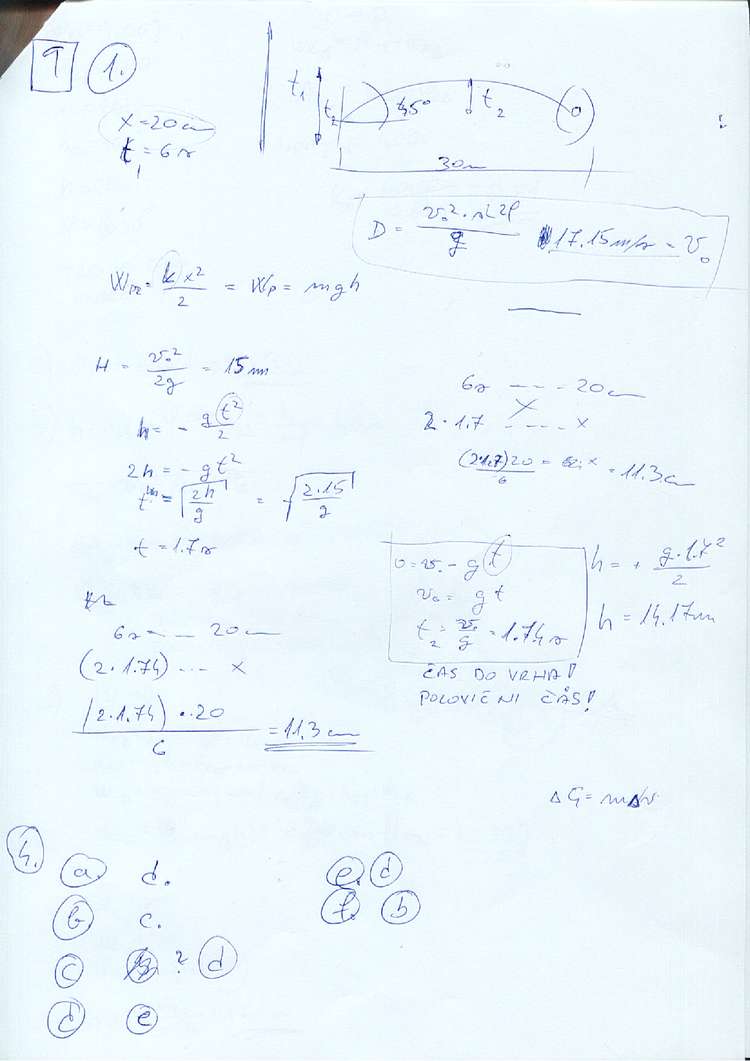 9 1.
x = 20 cm
t₁ = 6 s
t₁ t₂ 45° t₂
30 m
D = v₀² · sin 2φ / g 17.15 m/s = v₀
= kx² / 2 = Wp = mgh
H = v₀² / 2g = 15 m
h = - gt² / 2
2h = - gt²
t = √(2h / g) = √(2·15 / g)
t = 1.7 s
6s --- 20 cm
(2·1.74) --- x
(2·1.74)·20 / 6 = 11.3 cm
6s --- 20 cm
2·1.7 ---- x
(2·1.7)20 / 6 = x = 11.3 cm
0 = v₀ - gt
v₀ = gt
t₂ = v₀ / g = 1.74 s
ČAS DO VRHA!
POLOVIČNI ČAS!
h = + g·1.7² / 2
h = 14.17 m
ΔG = mΔv
4.
a. d.
b c.
c ? d
d e
e. d
f. b